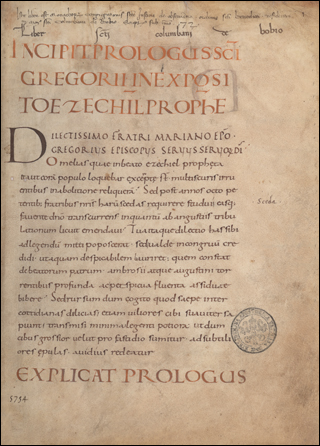 Liber S columbani de bobio
INCIPIT PROLOGUS SCI
GREGORII IN EXPOSI
TOE ZECHIEL PROPHE
DILECTISSIMO FRATRI MARIANO EPO
GREGORIUS EPISCOPUS SERVUS SERVORU DI
Omelias quae in beato ezechiel propheta
ita ut cora populo loquebar excepte st multis curis irru
entibus in abolitione reliquera Sed post annos octo pe
tentibus fratribus notarioru scedas requirere studui easq
favente dno transcurrens in quantu ab angustiis tribu
lationum licuit emendavi Tua itaque dilectio has sibi
ad legendu mitti poposcerat sed valde incongruu cre
didi ut aquam despicabilem hauriret quem constat
de beatorum patrum ambrosii atque augustini tor
rentibus profunda ac perspicua fluenta assidue
bibere Sed rursu dum cogito quod saepe inter
cotidianas delicias etiam viliores cibi suaviter sa
piunt transmisi minima legenti potiora ut dum
cibus grossior velut pro fastidio sumitur ad subtili
ores epulas avidius redeatur
EXPLICAT PROLOGUS
5754